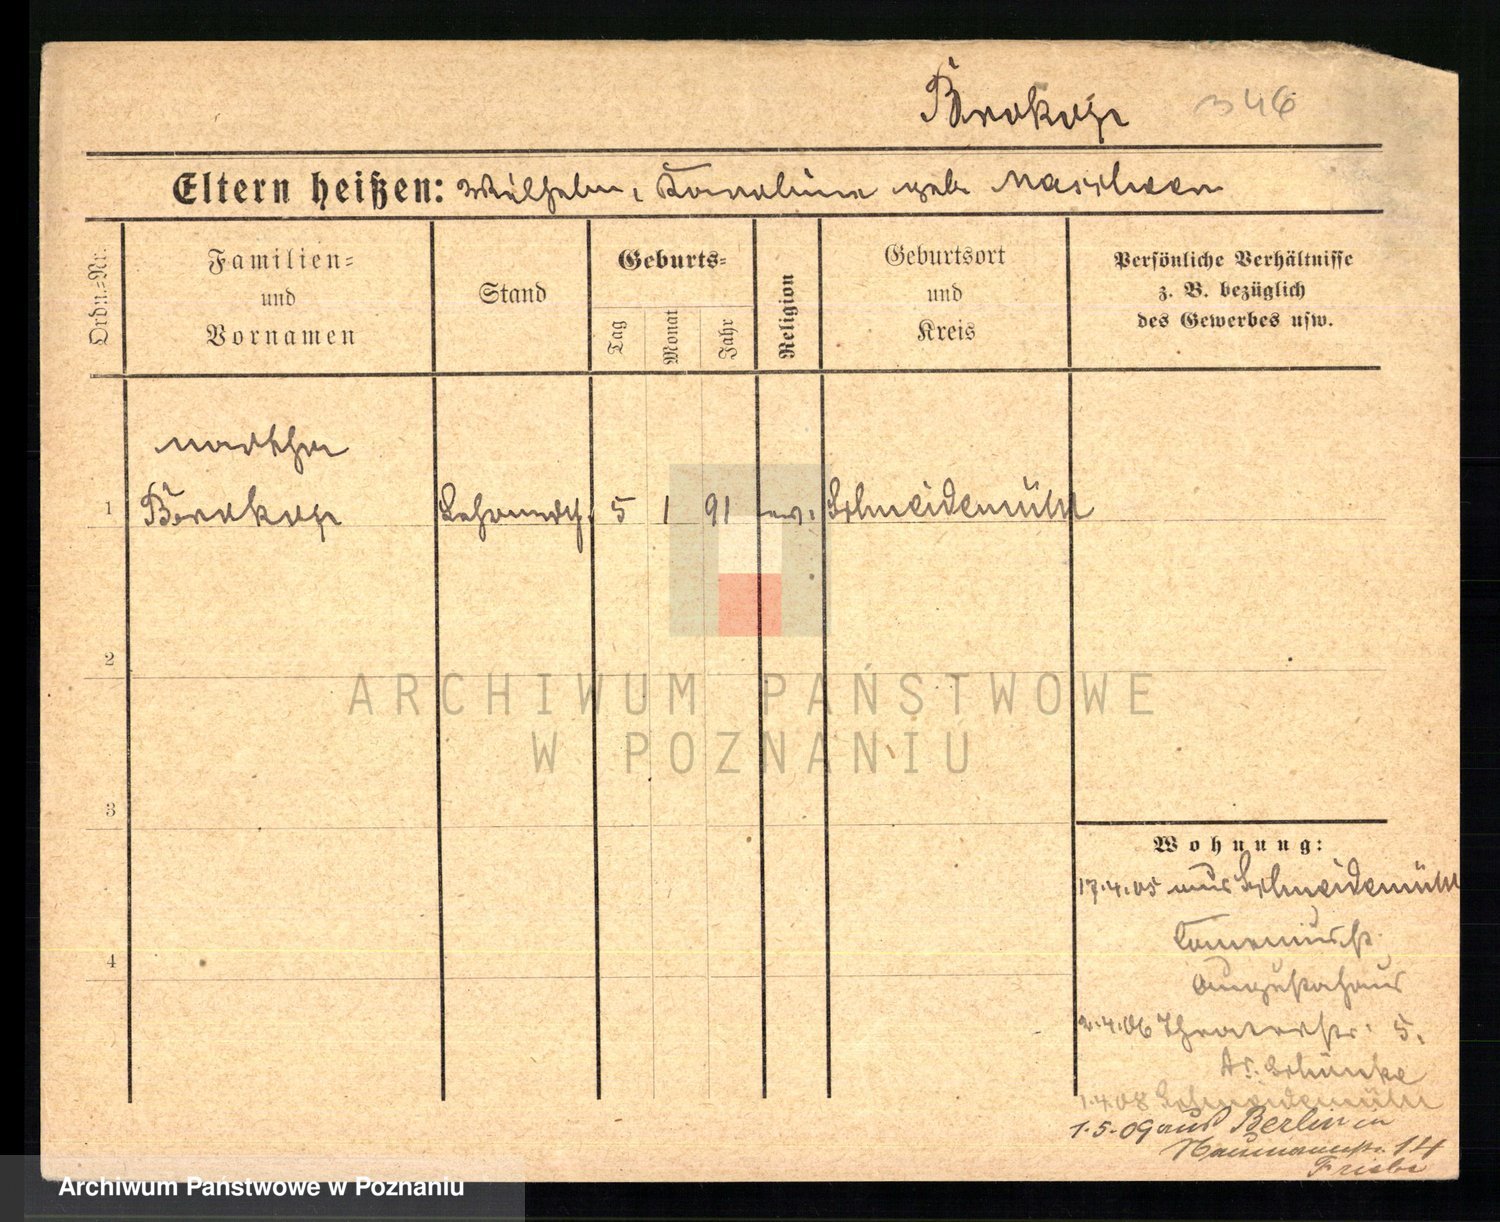 Brokopp
346
Eltern heißen: Wilhelm, Karoline geb.
Ordn.=Nr.
Familien=
und
Vornamen
Stand
Geburts=
Tag
Monat
Jahr
Religion
Geburtsort
und
Kreis
Persönliche Verhältnisse
z. B. bezüglich
des Gewerbes usw.
Martha
1 Brokopp 5 1 91 ev. Schneidemühl
2
3
4
ARCHIWUM PAŃSTWOWE
W POZNANIU
Wohnung:
17.4.05 aus Schneidemühl
Augustahaus
2.4.06 Theaterstr. 5.
1.4.08 Schneidemühl
1.5.09 aus Berlin in
Naumannstr. 14
Archiwum Państwowe w Poznaniu